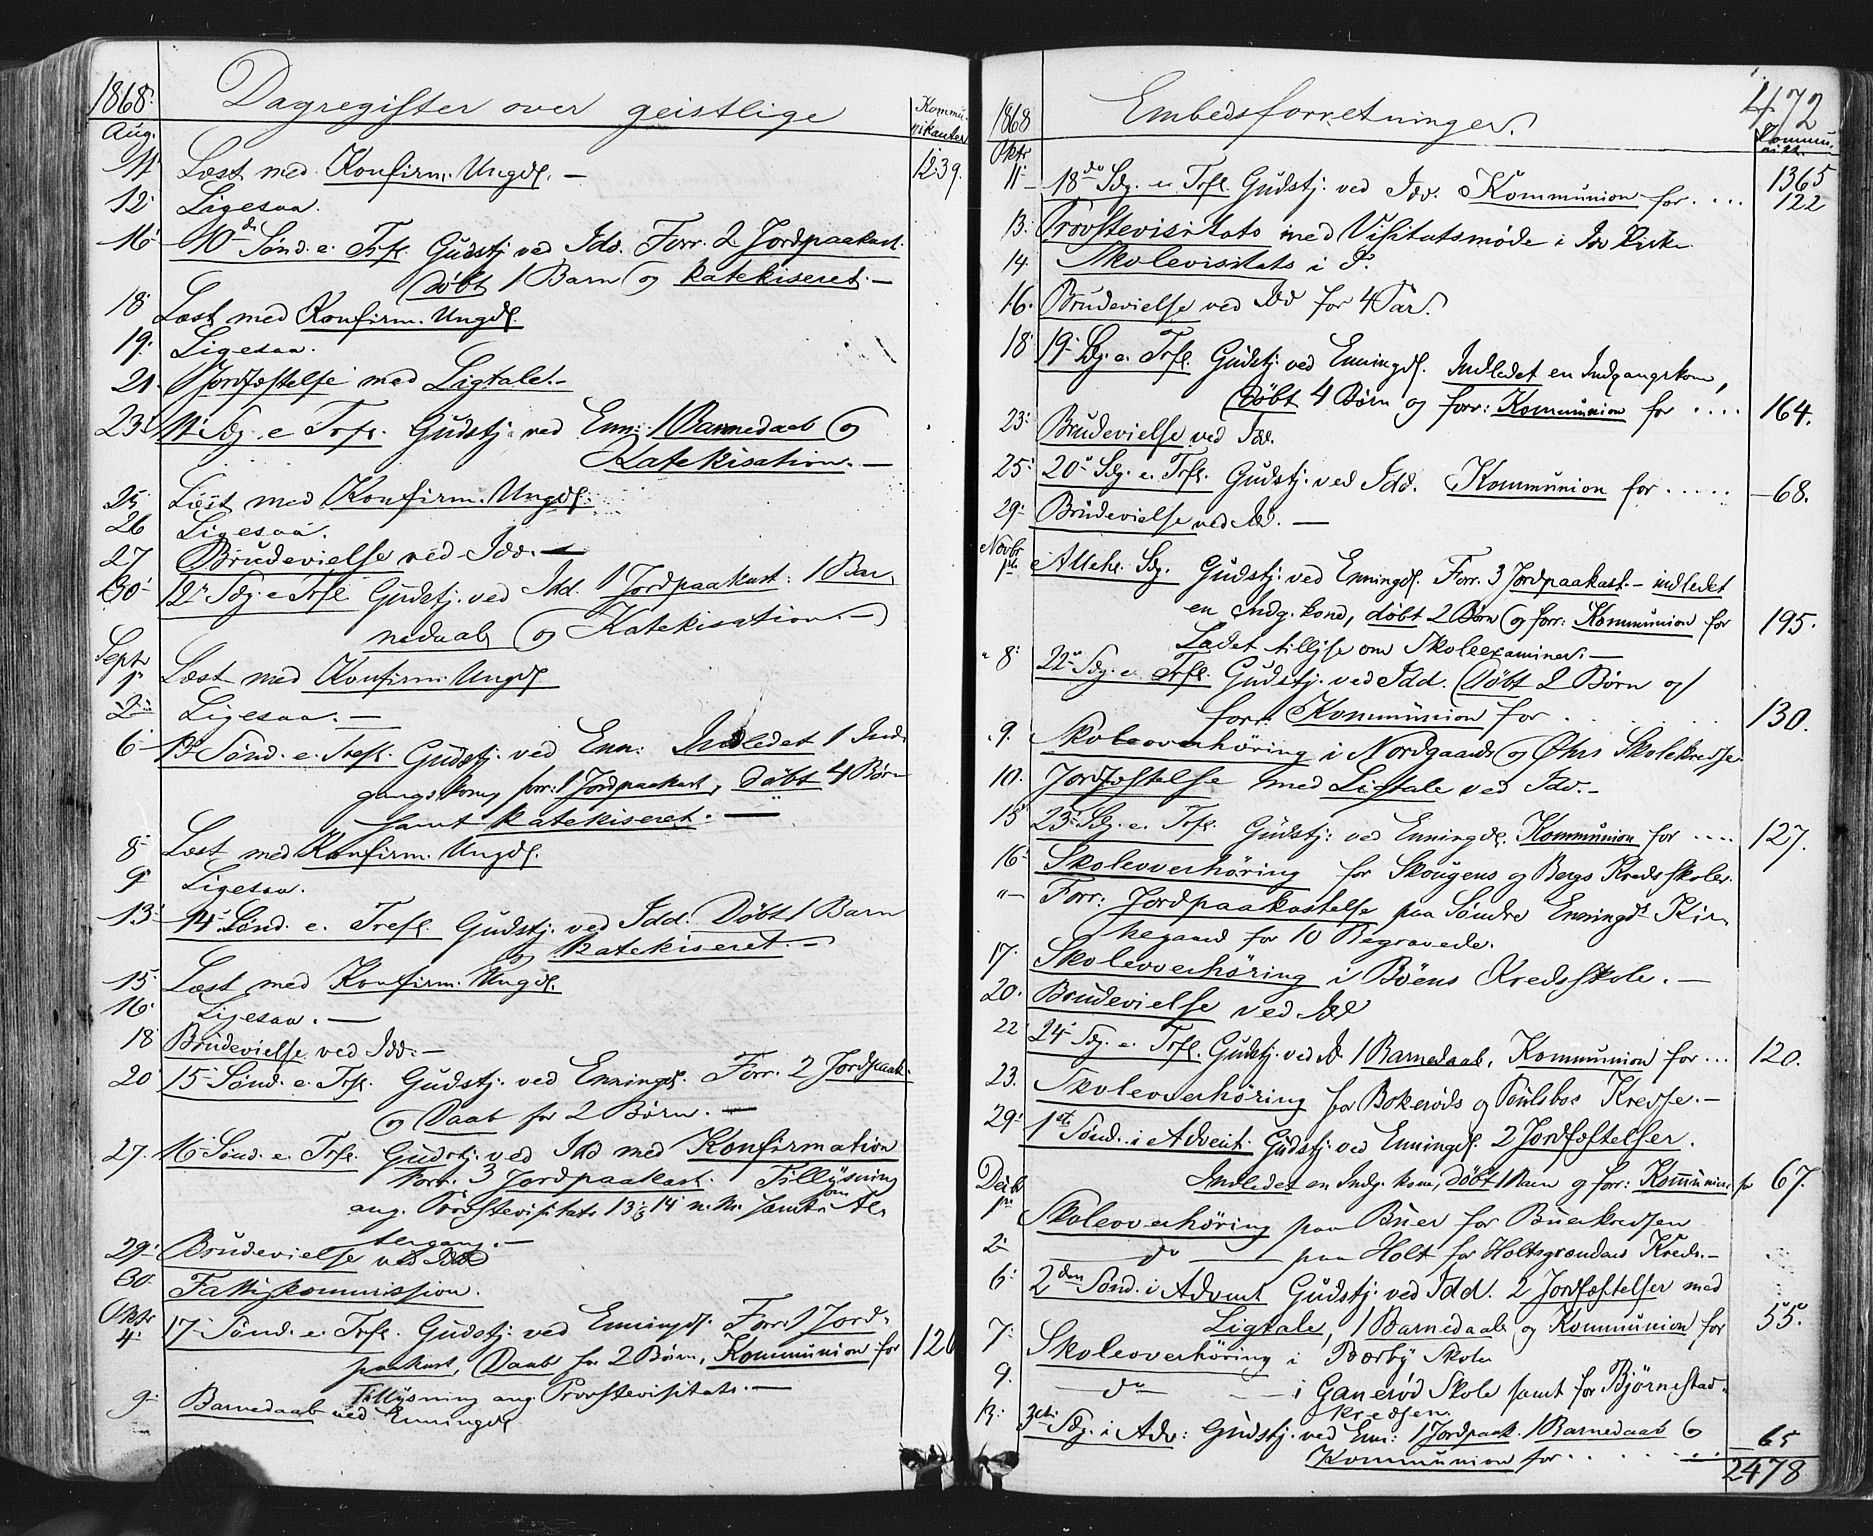 1868.
Dagregister over geistlige
Kommu-
nikanter
Aug.
11 Læst med Konfirm. Ungd. —
1239.
12 Ligesaa.
16 10de Sønd. e. Trfl. Gudstj. ved Idd. Forr. 2 Jordpaakast.
Døbt 1 Barn og katekiseret. —
18 Læst med Konfirm. Ungd.
19. Ligesaa.
21. Jordfæstelse med Ligtale. -
23. 11. Sdg. e. Trfl. Gudstj. ved Enn: 1 Barnedaab og
Katekisation. —
25 Læst med Konfirm. Ungd.
26 Ligesaa.
27 Brudevielse ved Idd. —
30 12. Sdg. e. Trfl. Gudstj. ved Idd. 1 Jordpaakast: 1 Bar-
nedaab og Katekisation. —
Septr
1 Læst med Konfirm. Ungd.
2 Ligesaa. —
6 13 Sønd. e. Trefl. Gudstj. ved Enn: Indledet 1 Ind-
gangskone, forr: 1 Jordpaakast, døbt 4 Børn
samt katekiseret. —
8 Læst med Konfirm. Ungd.
9 Ligesaa.
13 14 Sønd. e. Trefl. Gudstj. ved Idd. Døbt 1 Barn
og katekiseret. —
15 Læst med Konfirm. Ungd.
16 Ligesaa. —
18 Brudevielse ved Idd. —
20 15 Sønd. e. Trfl. Gudstj. ved Enningd. Forr. 2 Jordpaak.
og Daab for 2 Børn. —
27. 16 Sønd. e. Trfl. Gudstj. ved Idd med Konfirmation
Forr. 3 Jordpaakast. Tillysning
ang. Provstevisitats 13 & 14 n. M. samt om Al-
tergang. —
29. Brudevielse ved Idd
30. Fattigkommission.
Oktr
4. 17 Sønd. e. Trfl. Gudstj. ved Enningd. Forr. 1 Jord-
paakast, Daab for 2 Børn, Kommunion for 126
Tillysning ang. Provstevisitats. —
9. Barnedaab ved Enningd
1868
Embedsforretninger.
472
Kommu-
nikt.
Oktr
11 18de Sdg. e. Trfl. Gudstj. ved Idd. Kommunion for....
1365
122
13. Provstevisitats med Visitatsmøde i Idd Kirke
14. Skolevisitats i d.
16. Brudevielse ved Idd for 4 Par.
18 19. Sdg. e. Trfl. Gudstj. ved Enningd. Indledet en Indgangskone,
Døbt 4 Børn og forr: Kommunion for .... 164.
23. Brudevielse ved Idd.
25. 20. Sdg. e. Trfl. Gudstj. ved Idd. Kommunion for ..... 68.
29. Brudevielse ved Idd. —
Novbr
1. Alleh. Sdg. Gudstj. ved Enningd. Forr. 3 Jordpaakast. - indledet
en Indg. kone, døbt 2 Børn og forr: Kommunion for 195.
Ladet tillyse om Skoleexaminer. —
8. 22. Sdg. e. Trfl. Gudstj. ved Idd. Døbt 2 Børn og
forr. Kommunion for ..... 130.
9. Skoleoverhöring i Nordgaards og Øhns Skolekredse
10. Jordfæstelse med Ligtale ved Idd. -
15 23. Sdg. e. Trfl. Gudstj. ved Enningd. Kommunion for .... 127.
16 Skoleoverhöring for Skougens og Bergs Kredsskoler.
"- Forr. Jordpaakastelse paa Söndre Enningds Kir-
kegaard for 10 Begravede.
17. Skoleoverhöring i Böens Kredsskole. —
20. Brudevielse ved Idd
22 24 Sdg. e. Trfl. Gudstj. ved Id. 1 Barnedaab, Kommunion for... 120.
23. Skoleoverhöring for Bokeröds og Poulsbos Kredse. —
29. 1ste Sønd. i Advent. Gudstj. ved Enningd. 2 Jordfæstelser.
Indledet en Indg. kone, døbt 1 Barn og forr: Kommunion for 67.
Decbr
1 Skoleoverhöring paa Buer for Buerkredsen
2. — do — paa Holt for Holtsgrændens Kreds. —
6. 2den Sønd. i Advent Gudstj. ved Idd. 2 Jordfæstelser med
Ligtale, 1 Barnedaab og Kommunion for 55.
7. Skoleoverhöring i Bærby Skole
9. — do — i Ganeröd Skole samt for Björnestad-
kredsen.
13. 3die Sdg. i Adv: Gudstj. ved Enn: 1 Jordpaak. 1 Barnedaab &
Kommunion for ..... 65
2478